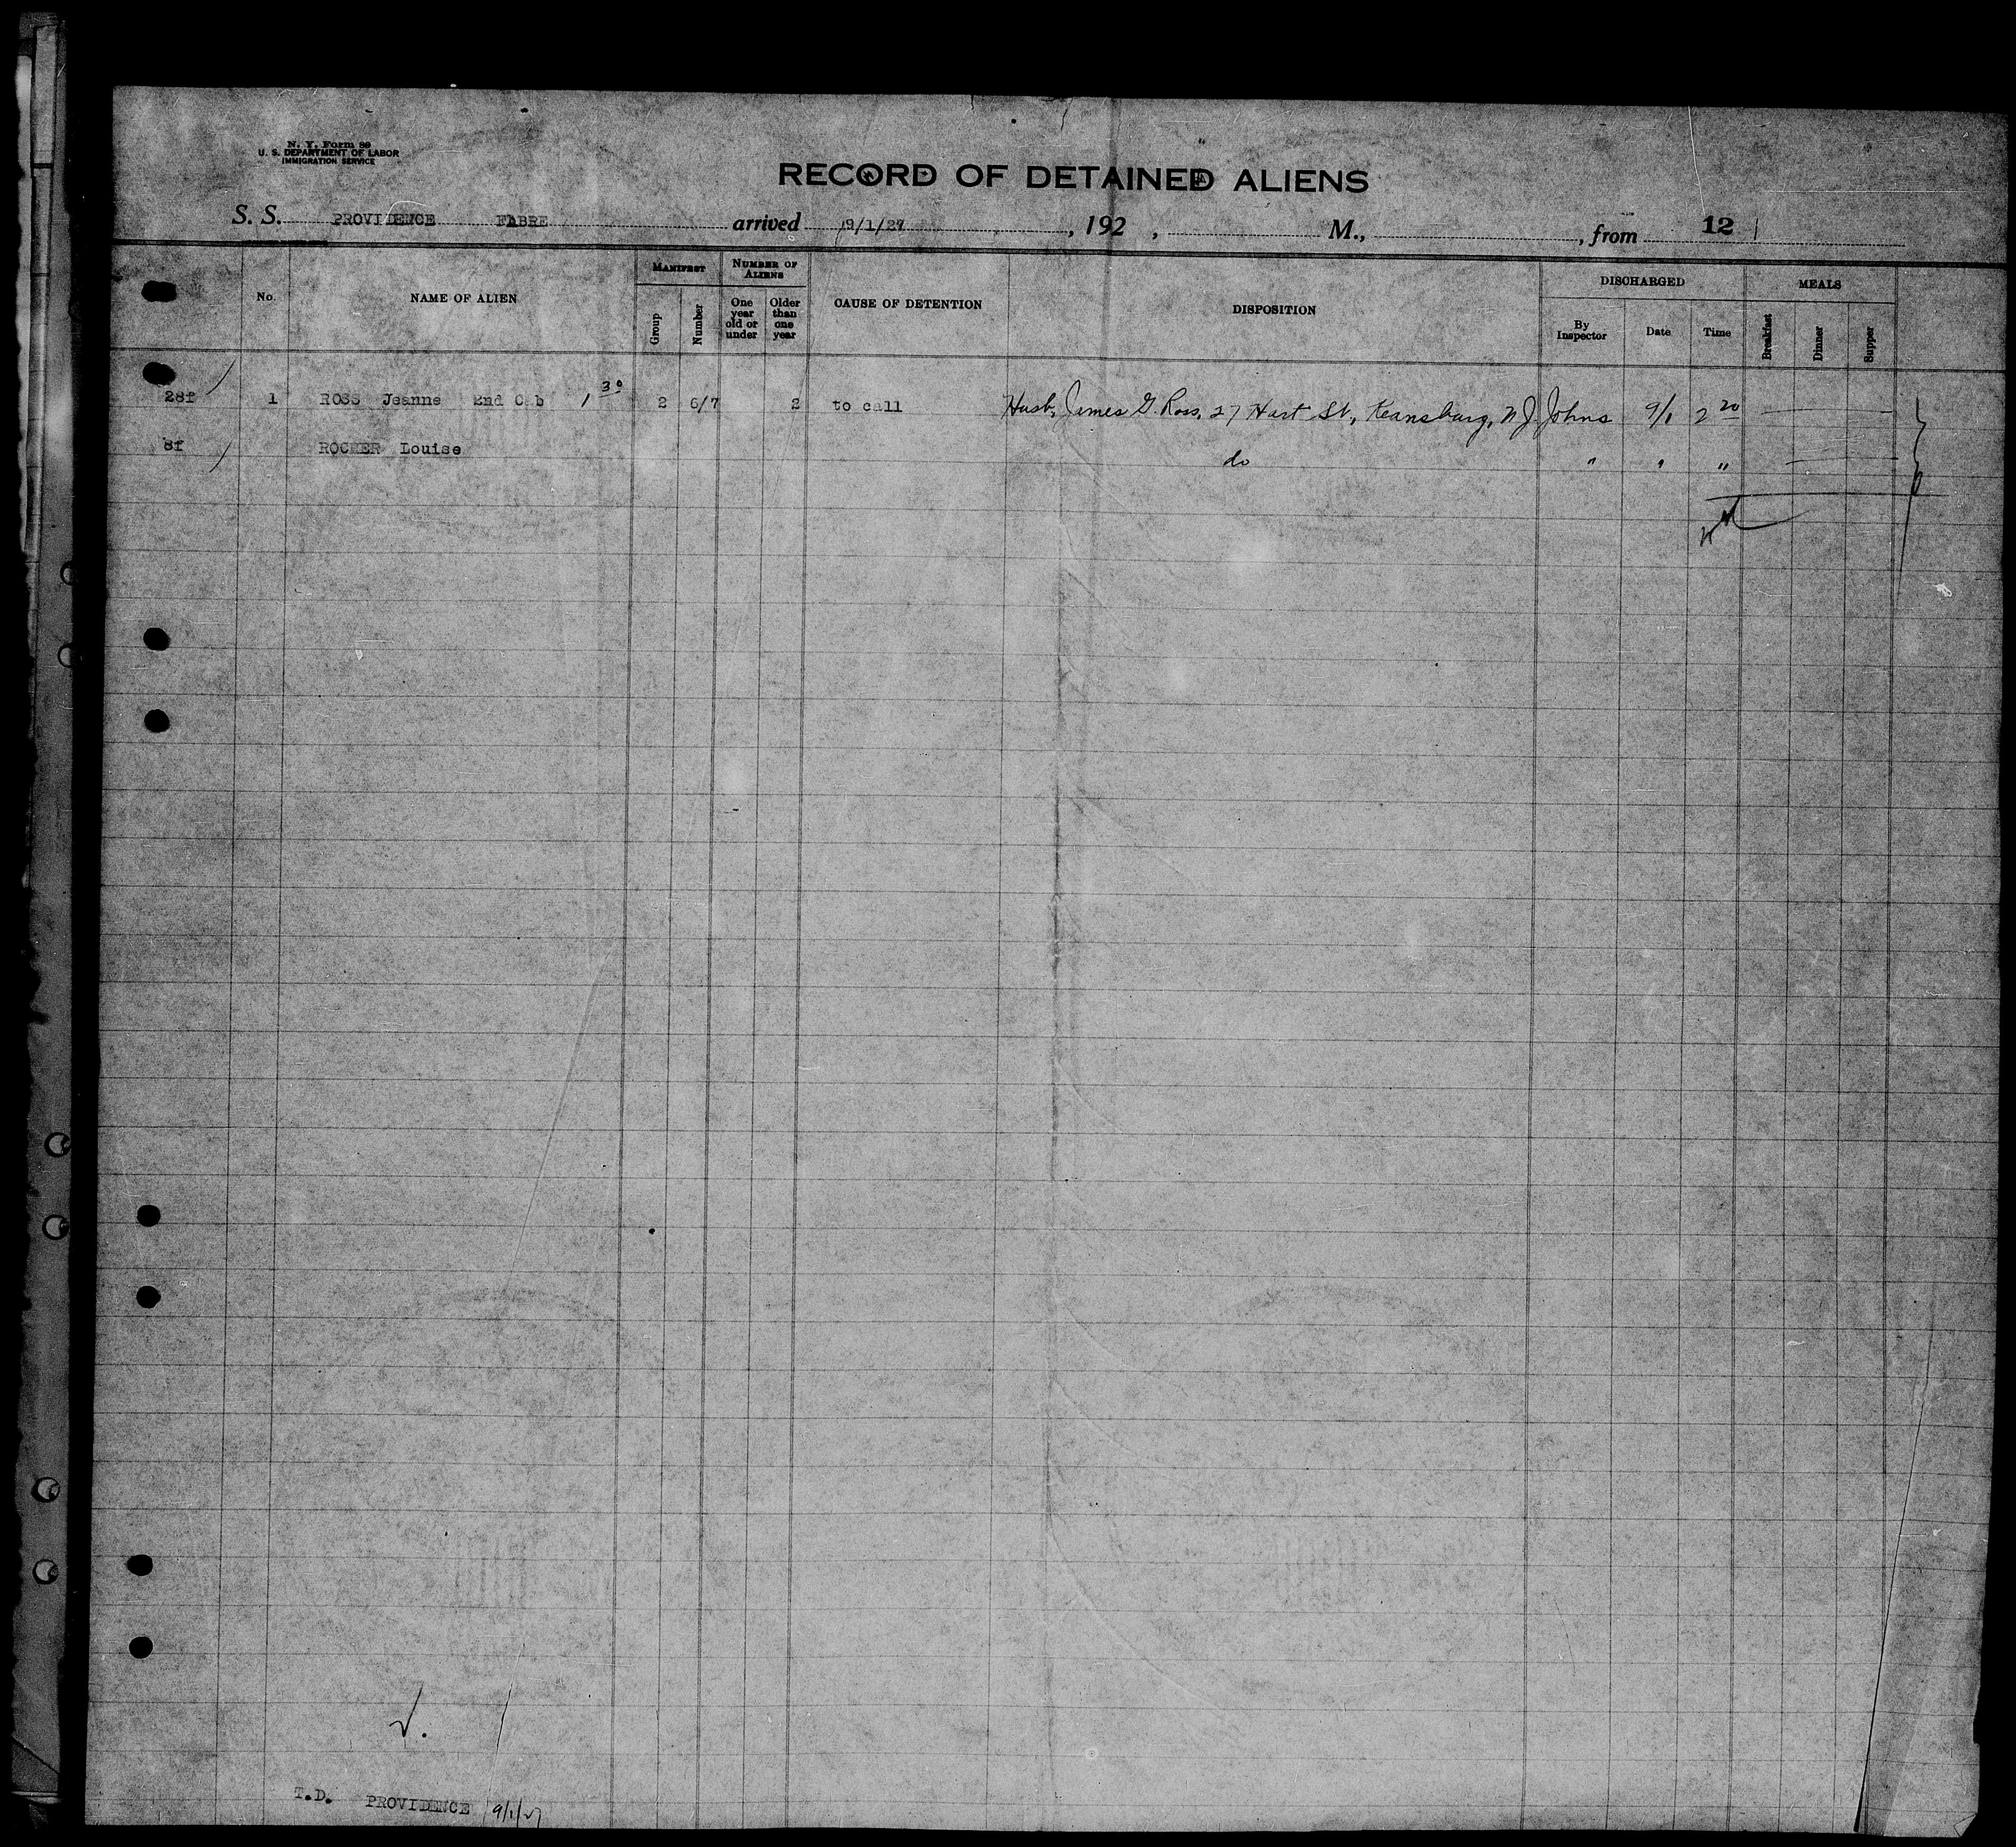 N. Y. Form 89
U. S. DEPARTMENT OF LABOR
IMMIGRATION SERVICE
RECORD OF DETAINED ALIENS
S. S. PROVIDENCE FABRE arrived 9/1/27, 192 , M., , from 12
No. NAME OF ALIEN MANIFEST Group Number NUMBER OF ALIENS One year old or under Older than one year CAUSE OF DETENTION DISPOSITION DISCHARGED By Inspector Date Time MEALS Breakfast Dinner Supper
28f 1 ROSS Jeanne 2nd Cab 1 30 2 6/7 2 to call Husb, James G. Ross, 27 Hart St, Keansburg, N.J. Johns 9/1 2 20
8f ROCHER Louise do " " "
T.D. PROVIDENCE 9/1/27